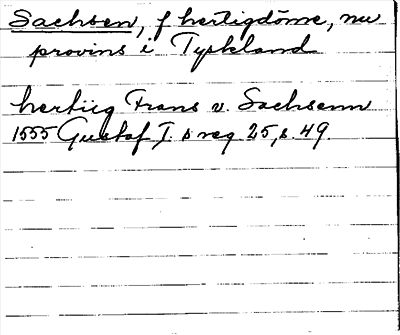 Sachsen, f hertigdöme, nu
provins i Tyskland
hertiig Frans v. Sachsenn
1555 Gustaf I. s reg 25, s. 49.